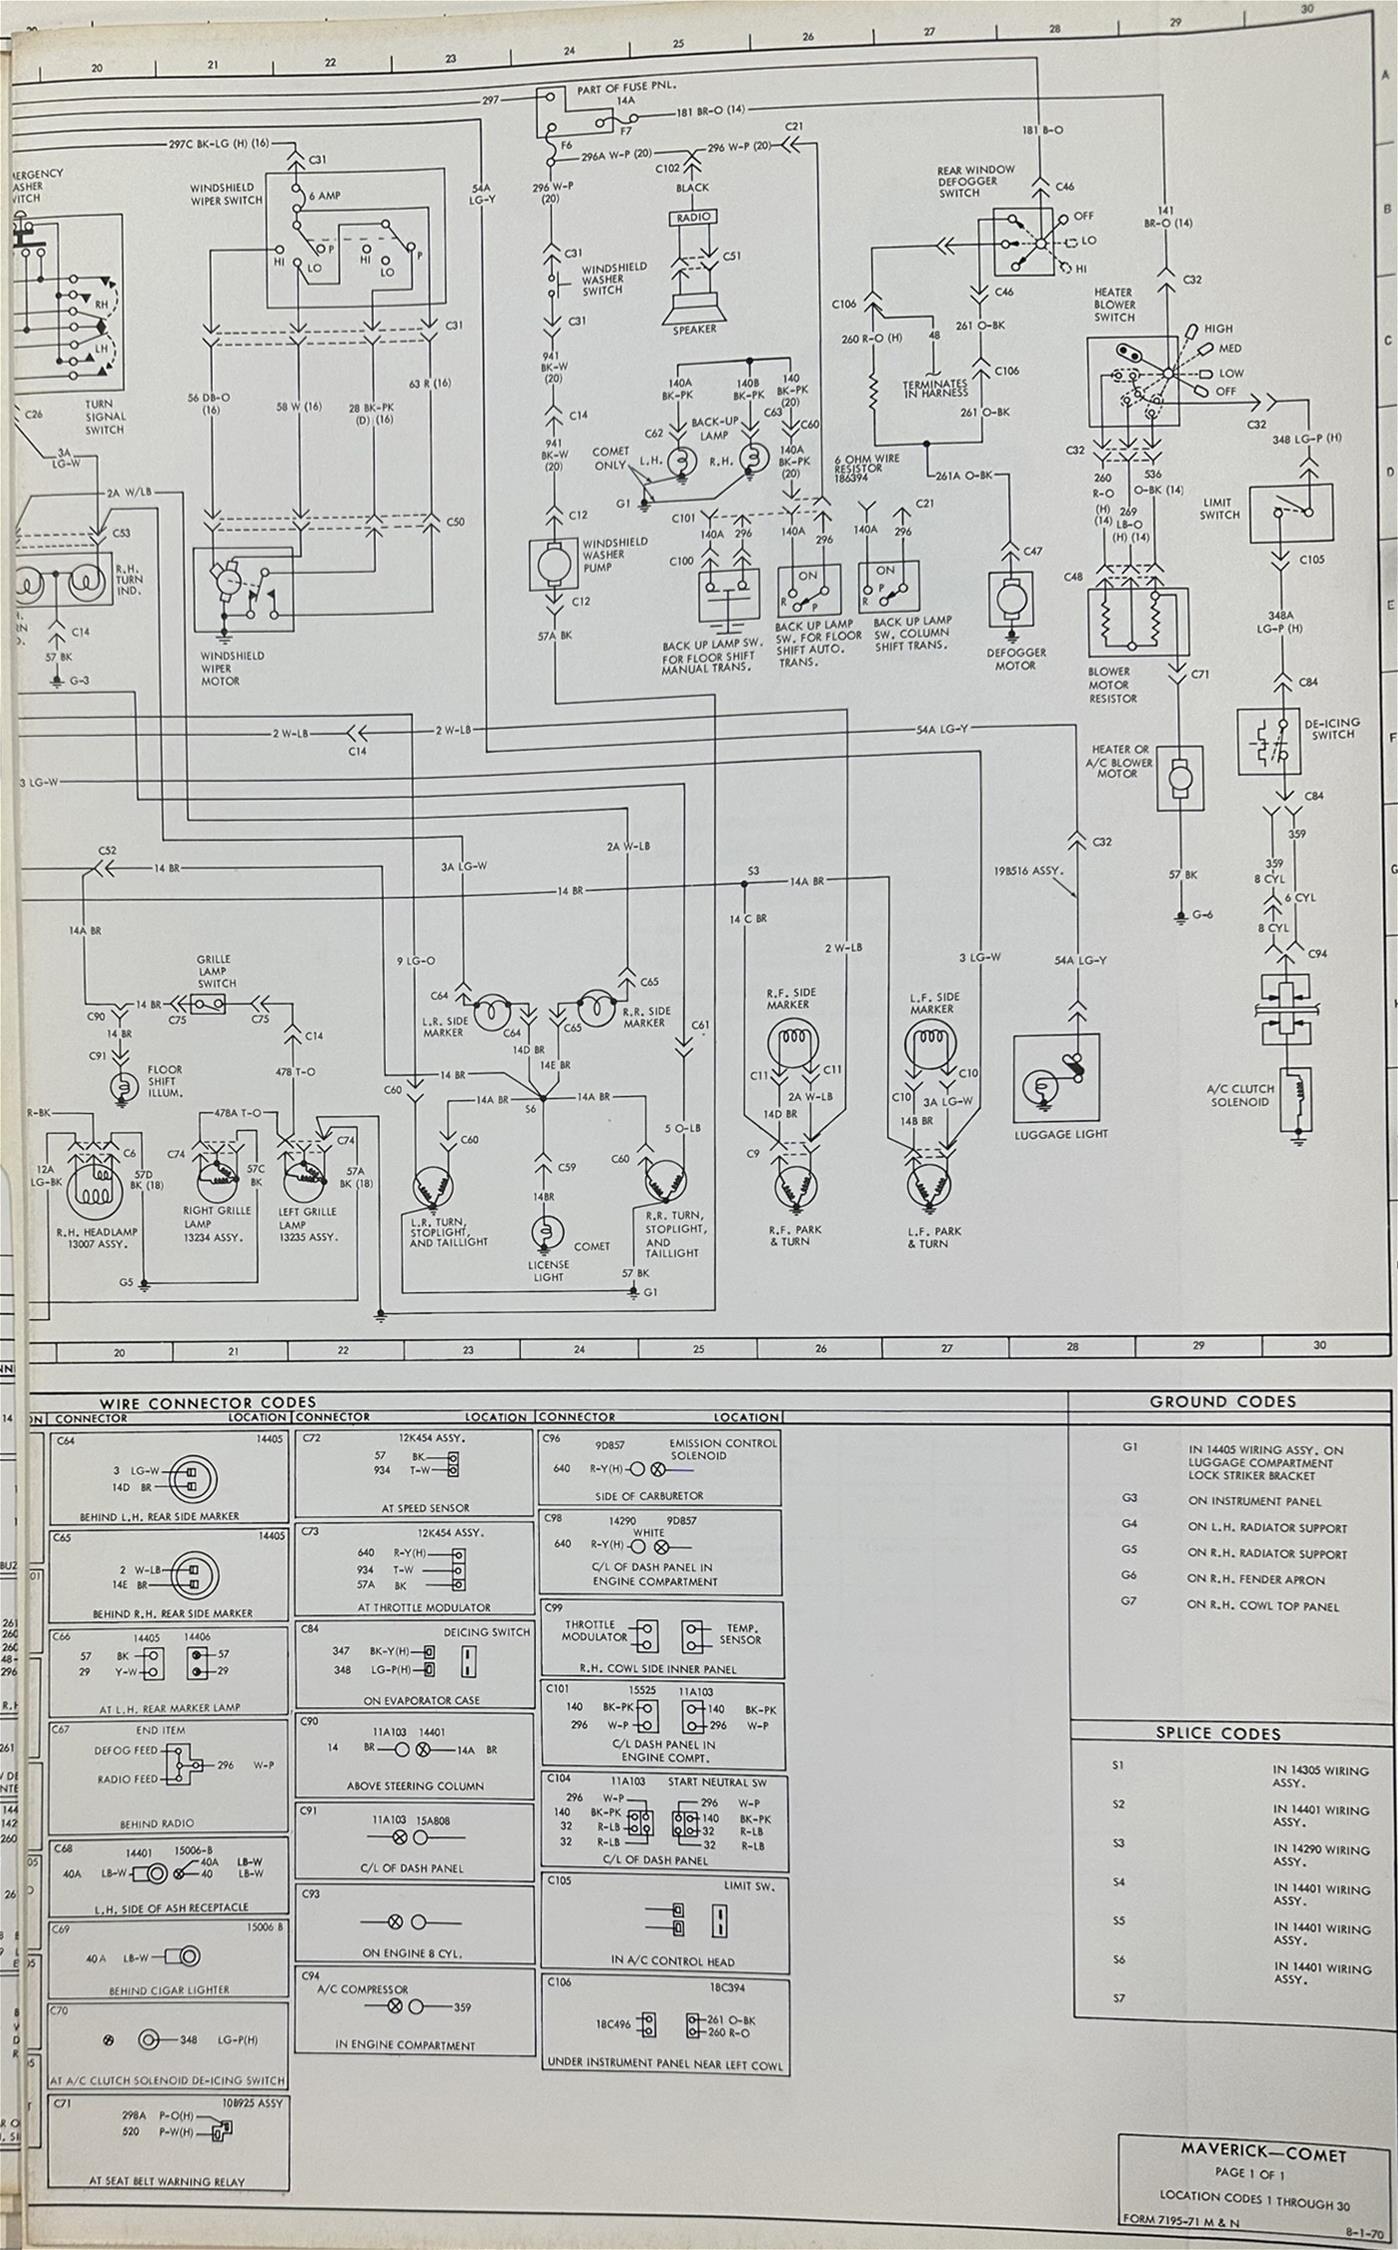 20 21 22 23 24 25 26 27 28 29 30
A
PART OF FUSE PNL.
297
14A
F7
181 BR-O (14)
F6
297C BK-LG (H) (16)
C31
296A W-P (20)
296 W-P (20)
C21
C102
181 B-O
WINDSHIELD
WIPER SWITCH
6 AMP
54A
LG-Y
296 W-P
(20)
BLACK
RADIO
REAR WINDOW
DEFOGGER
SWITCH
C46
141
BR-O (14)
B
HI
LO
P
HI
LO
P
C31
C51
OFF
LO
HI
WINDSHIELD
WASHER
SWITCH
SPEAKER
C31
C31
C46
C106
C32
HEATER
BLOWER
SWITCH
RH
LH
TURN
SIGNAL
SWITCH
C26
260 R-O (H)
48
261 O-BK
TERMINATES
IN HARNESS
C106
261 O-BK
HIGH
MED
LOW
OFF
C
56 DB-O
(16)
58 W (16)
28 BK-PK
(D) (16)
63 R (16)
941
BK-W
(20)
C14
941
BK-W
(20)
140A
BK-PK
140B
BK-PK
140
BK-PK
(20)
C62
BACK-UP
LAMP
C63
C60
COMET
ONLY
L.H.
R.H.
140A
BK-PK
(20)
G1
6 OHM WIRE
RESISTOR
186394
261A O-BK
C32
348 LG-P (H)
C32
260
R-O
(H)
(14)
269
LB-O
(H) (14)
536
O-BK (14)
LIMIT
SWITCH
D
3A
LG-W
2A W/LB
C53
C50
C12
C101
140A
296
140A
296
C21
140A
296
C47
C48
C105
R.H.
TURN
IND.
C14
57 BK
G-3
WINDSHIELD
WIPER
MOTOR
WINDSHIELD
WASHER
PUMP
C12
57A BK
C100
ON
R
P
ON
R
P
BACK UP LAMP SW.
FOR FLOOR SHIFT
MANUAL TRANS.
BACK UP LAMP
SW. FOR FLOOR
SHIFT AUTO.
TRANS.
BACK UP LAMP
SW. COLUMN
SHIFT TRANS.
DEFOGGER
MOTOR
BLOWER
MOTOR
RESISTOR
C71
348A
LG-P (H)
C84
E
2 W-LB
C14
2 W-LB
54A LG-Y
HEATER OR
A/C BLOWER
MOTOR
DE-ICING
SWITCH
C84
F
3 LG-W
C52
14 BR
3A LG-W
2A W-LB
14 BR
S3
14A BR
19B516 ASSY.
C32
57 BK
G-6
359
359
8 CYL
6 CYL
8 CYL
C94
G
14A BR
14 C BR
9 LG-O
2 W-LB
3 LG-W
54A LG-Y
GRILLE
LAMP
SWITCH
C90
14 BR
C75
C75
14 BR
C91
C14
478 T-O
FLOOR
SHIFT
ILLUM.
C64
L.R. SIDE
MARKER
C64
C65
C65
R.R. SIDE
MARKER
14D BR
14E BR
C61
R.F. SIDE
MARKER
L.F. SIDE
MARKER
C11
C11
C10
C10
14D BR
2A W-LB
14B BR
3A LG-W
A/C CLUTCH
SOLENOID
LUGGAGE LIGHT
R-BK
478A T-O
14 BR
C60
14A BR
S6
14A BR
5 O-LB
12A
LG-BK
C6
57D
BK (18)
C74
57C
BK
C74
57A
BK (18)
C60
C59
14BR
C60
C9
R.H. HEADLAMP
13007 ASSY.
RIGHT GRILLE
LAMP
13234 ASSY.
LEFT GRILLE
LAMP
13235 ASSY.
L.R. TURN,
STOPLIGHT,
AND TAILLIGHT
COMET
LICENSE
LIGHT
R.R. TURN,
STOPLIGHT,
AND
TAILLIGHT
R.F. PARK
& TURN
L.F. PARK
& TURN
G5
57 BK
G1
20 21 22 23 24 25 26 27 28 29 30
WIRE CONNECTOR CODES
CONNECTOR LOCATION CONNECTOR LOCATION CONNECTOR LOCATION
C64 14405
3 LG-W
14D BR
BEHIND L.H. REAR SIDE MARKER
C65 14405
2 W-LB
14E BR
BEHIND R.H. REAR SIDE MARKER
C66 14405 14406
57 BK 57
29 Y-W 29
AT L.H. REAR MARKER LAMP
C67 END ITEM
DEFOG FEED
296 W-P
RADIO FEED
BEHIND RADIO
C68 14401 15006-B
40A LB-W 40A LB-W
40 LB-W
L.H. SIDE OF ASH RECEPTACLE
C69 15006 B
40A LB-W
BEHIND CIGAR LIGHTER
C70
348 LG-P(H)
AT A/C CLUTCH SOLENOID DE-ICING SWITCH
C71 10B925 ASSY
298A P-O(H)
520 P-W(H)
AT SEAT BELT WARNING RELAY
C72 12K454 ASSY.
57 BK
934 T-W
AT SPEED SENSOR
C73 12K454 ASSY.
640 R-Y(H)
934 T-W
57A BK
AT THROTTLE MODULATOR
C84 DEICING SWITCH
347 BK-Y(H)
348 LG-P(H)
ON EVAPORATOR CASE
C90 11A103 14401
14 BR 14A BR
ABOVE STEERING COLUMN
C91 11A103 15A808
C/L OF DASH PANEL
C93
ON ENGINE 8 CYL.
C94 A/C COMPRESSOR
359
IN ENGINE COMPARTMENT
C96 9D857 EMISSION CONTROL
SOLENOID
640 R-Y(H)
SIDE OF CARBURETOR
C98 14290 9D857
WHITE
640 R-Y(H)
C/L OF DASH PANEL IN
ENGINE COMPARTMENT
C99
THROTTLE
MODULATOR
TEMP.
SENSOR
R.H. COWL SIDE INNER PANEL
C101 15525 11A103
140 BK-PK 140 BK-PK
296 W-P 296 W-P
C/L DASH PANEL IN
ENGINE COMPT.
C104 11A103 START NEUTRAL SW
296 W-P 296 W-P
140 BK-PK 140 BK-PK
32 R-LB 32 R-LB
32 R-LB 32 R-LB
C/L OF DASH PANEL
C105 LIMIT SW.
IN A/C CONTROL HEAD
C106 18C394
18C496 261 O-BK
260 R-O
UNDER INSTRUMENT PANEL NEAR LEFT COWL
GROUND CODES
G1 IN 14405 WIRING ASSY. ON
LUGGAGE COMPARTMENT
LOCK STRIKER BRACKET
G3 ON INSTRUMENT PANEL
G4 ON L.H. RADIATOR SUPPORT
G5 ON R.H. RADIATOR SUPPORT
G6 ON R.H. FENDER APRON
G7 ON R.H. COWL TOP PANEL
SPLICE CODES
S1 IN 14305 WIRING
ASSY.
S2 IN 14401 WIRING
ASSY.
S3 IN 14290 WIRING
ASSY.
S4 IN 14401 WIRING
ASSY.
S5 IN 14401 WIRING
ASSY.
S6 IN 14401 WIRING
ASSY.
S7
MAVERICK—COMET
PAGE 1 OF 1
LOCATION CODES 1 THROUGH 30
FORM 7195-71 M & N
8-1-70